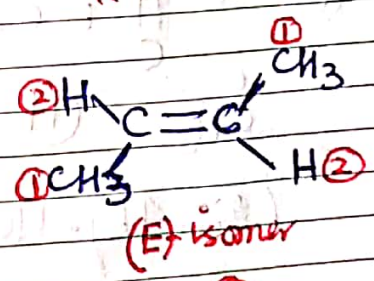 ①
CH3
②H
C=C
①CH3
H②
(E)-isomer